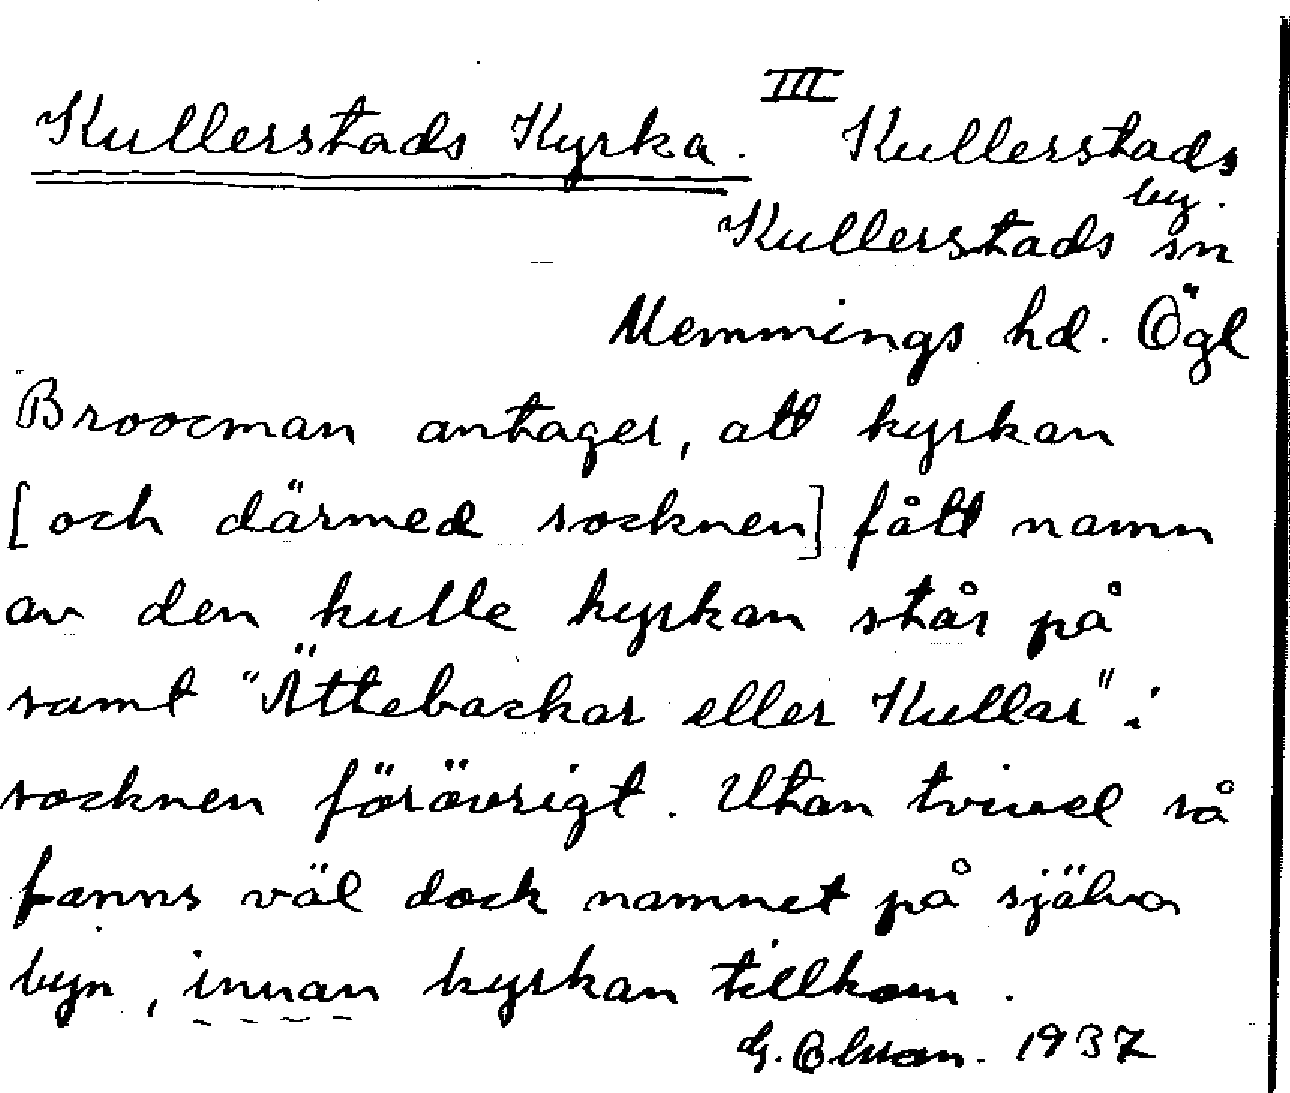 III
Kullerstads Kyrka. Kullerstads
by.
Kullerstads sn
Memmings hd. Ögl
Broocman antager, att kyrkan
[och därmed socknen] fått namn
av den kulle kyrkan står på
samt "Ättebackar eller Kullar" i
socknen förövrigt. Utan tvivel så
fanns väl dock namnet på själva
byn, innan kyrkan tillkom.
G. Olsson. 1937